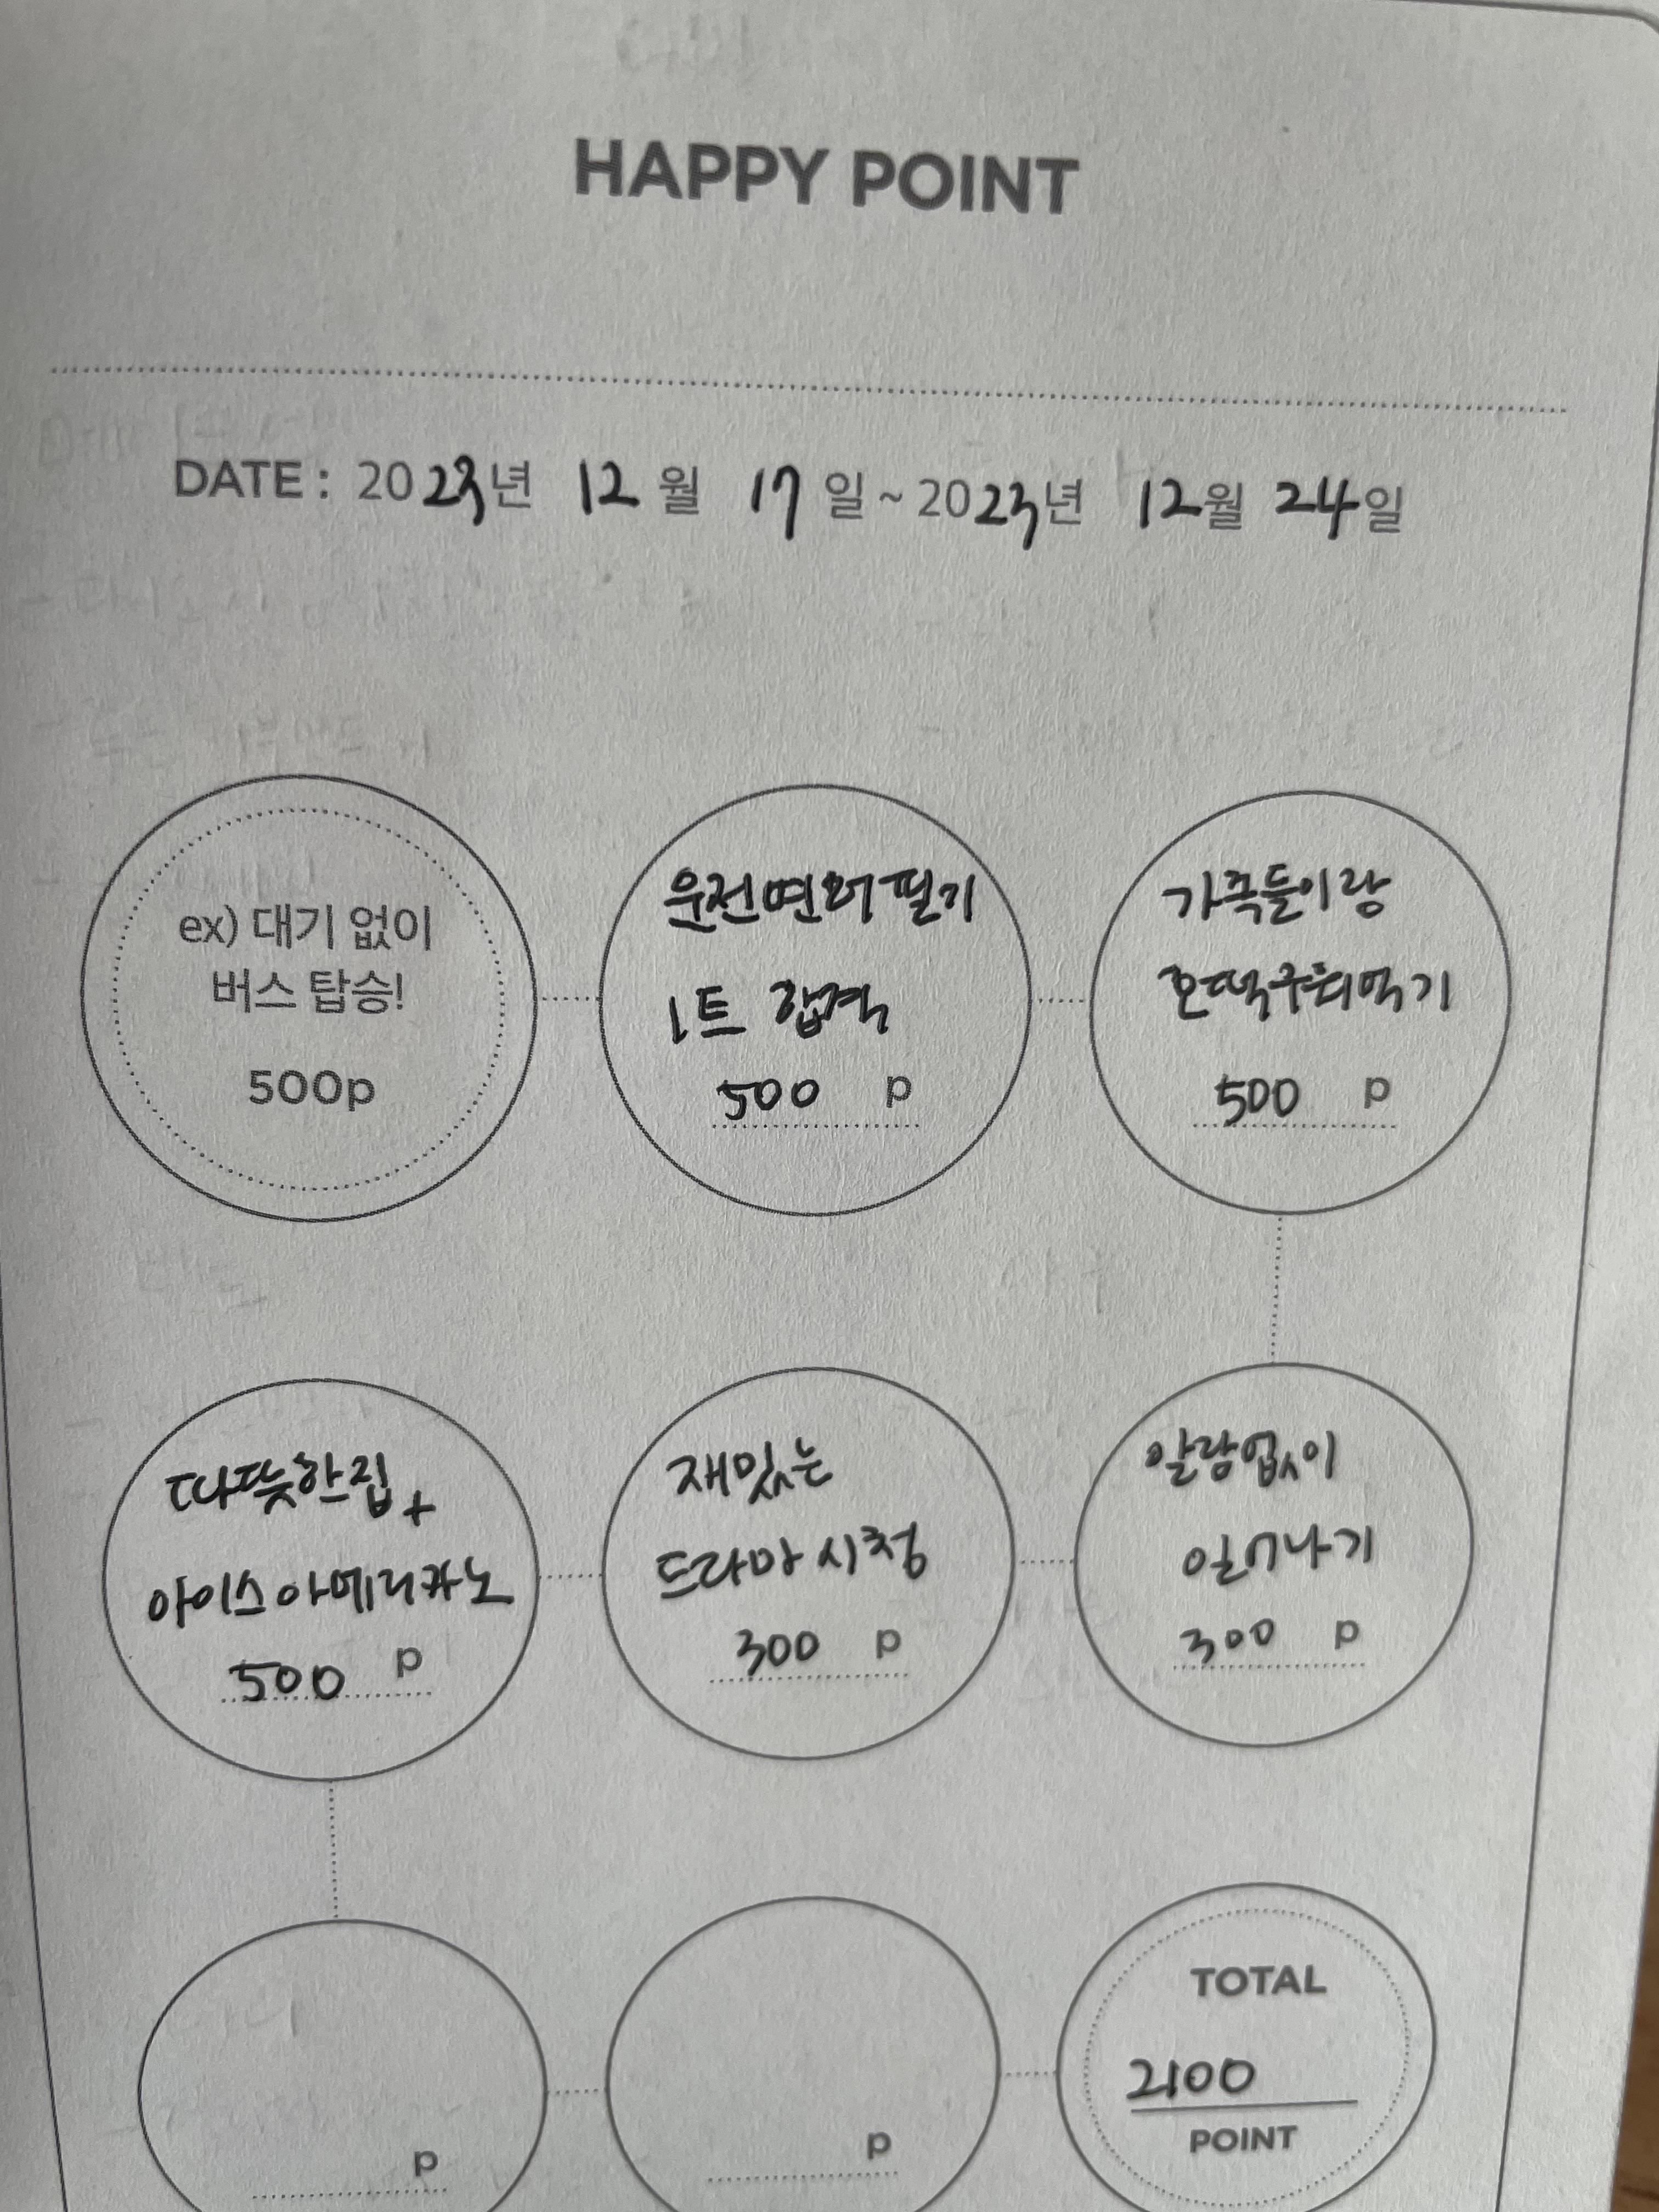 HAPPY POINT
DATE : 2023년 12월 17일 ~ 2023년 12월 24일
ex) 대기 없이
버스 탑승!
500p
운전면허 필기
1트 합격
500 p
가족들이랑
호떡구워먹기
500 p
따뜻한집+
아이스아메리카노
500 p
재밌는
드라마 시청
300 p
알람없이
일어나기
300 p
p
p
TOTAL
2100
POINT